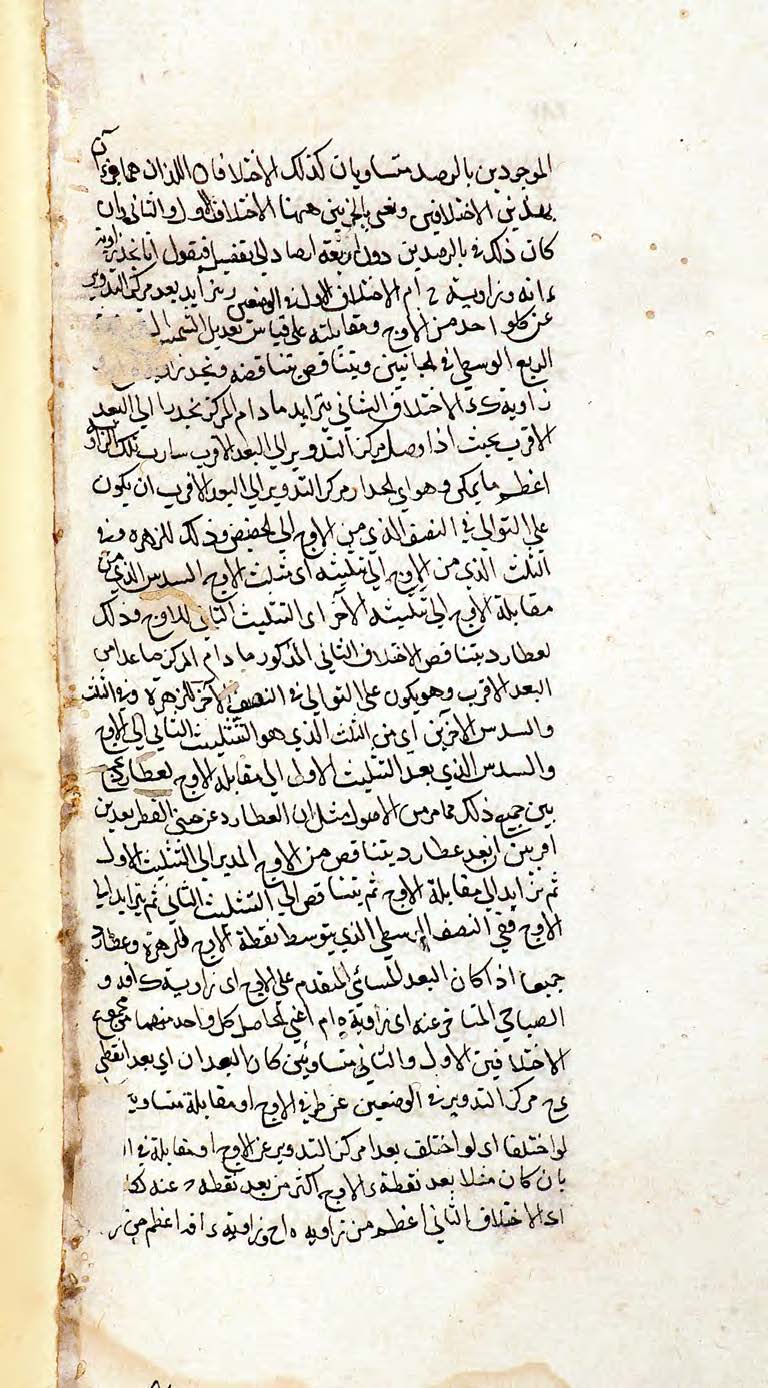 الموجودين بالرصد متساويان كذلك الاختلافان اللذان هما جزءان
بهذين الاختلافين ونعنى بالجزئين ههنا الاختلاف الاول والثانى وان
كان ذلك فى بالرصدين دون اربعة ارصاد الى تفصيل فنقول انا نجد زاوية
ه انه وزاوية ح ام الاختلاف الاول فى الوضعين يتزايد بعد مركز التدوير
عن كل واحد من الاوج ومقابلته على قياس تعديل الشمس الى
الربع الوسطى فى لجانبين ويتناقص بتناقصه ونجد
زاوية ى الاختلاف الثانى يتزايد ما دام المركز نجدرا الى البعد
الاقرب بحيث اذا وصل مركز التدوير الى البعد الاقرب سارت تلك الزاو
اعظم ما يمكن وهو اى لحدار مركز التدوير الى البعد الاقرب ان يكون
على التوالى فى النصف الذى من الاوج الى لحضيض وذلك للزهره وفى
الثلث الذى من الاوج الى تثليثه اى مثلث الاوج السدس الذى من
مقابلة الاوج الى تثليثه الآخر اى التثليث الثانى للاوج وذلك
لعطارد يتناقص الاختلاف الثانى المذكور ما دام المركز صاعدا من
البعد الاقرب وهو يكون على التوالى فى النصف الآخر للزهرة وفى الثلث
والسدس الآخرين اى من الثلث الذى هو التثليث الثانى الى الاوج
والسدس الذى بعد التثليث الاول الى مقابلة الاوج لعطارد
بين جميع ذلك مما مر من الاصول مثل ان العطارد عن جنبى القطر بعدين
اقربين ان بعد عطارد يتناقص من الاوج المدير الى التثليث الاول
ثم يزايد الى مقابلة الاوج ثم يتناقص الى التثليث الثانى ثم يتزايد الى
الاوج ففى النصف الوسطى الذى يتوسط نقطة الاوج للزهرة وعطارد
جميعا اذا كان البعد المسائى المتقدم على الاوج اى زاوية ى اف و
الصباحى المتاخر عنه اى زاوية ه ام اعنى لحاصل كل واحد منهما مجموع
الاختلافين الاول والثانى متساويين كان البعدان اى بعدا نقطتى
ى ح مركز التدوير فى الوضعين عن طرفى الاوج او مقابلة متساوية
لو اختلفا اى لو اختلف بعدا مركز التدوير عن الاوج او مقابلة فى ا
بان كان مثلا بعد نقطة ء الاوج اكثر من بعد نقطة ح عنه لكا
اى الاختلاف الثانى اعظم من زاويه ه اح وزاوية ء اف اعظم من